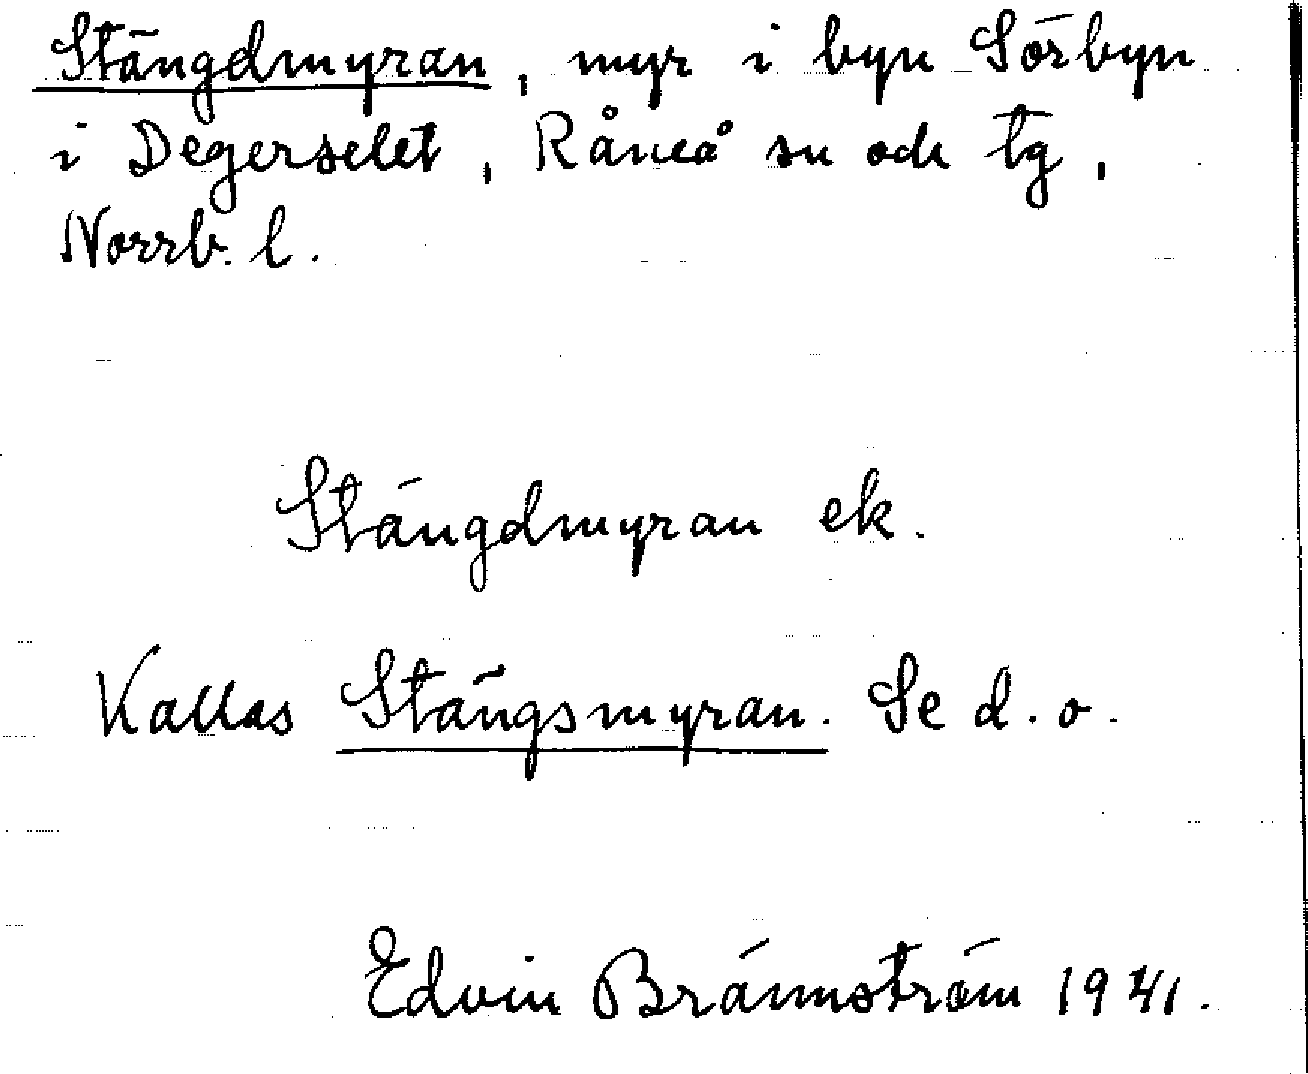 Stängdmyran, myr i byn Sörbyn
i Degerselet, Råneå sn och tg,
Norrb. l.
Stängdmyran ek.
Kallas Stängsmyran. Se d. o.
Edvin Brännström 1941.